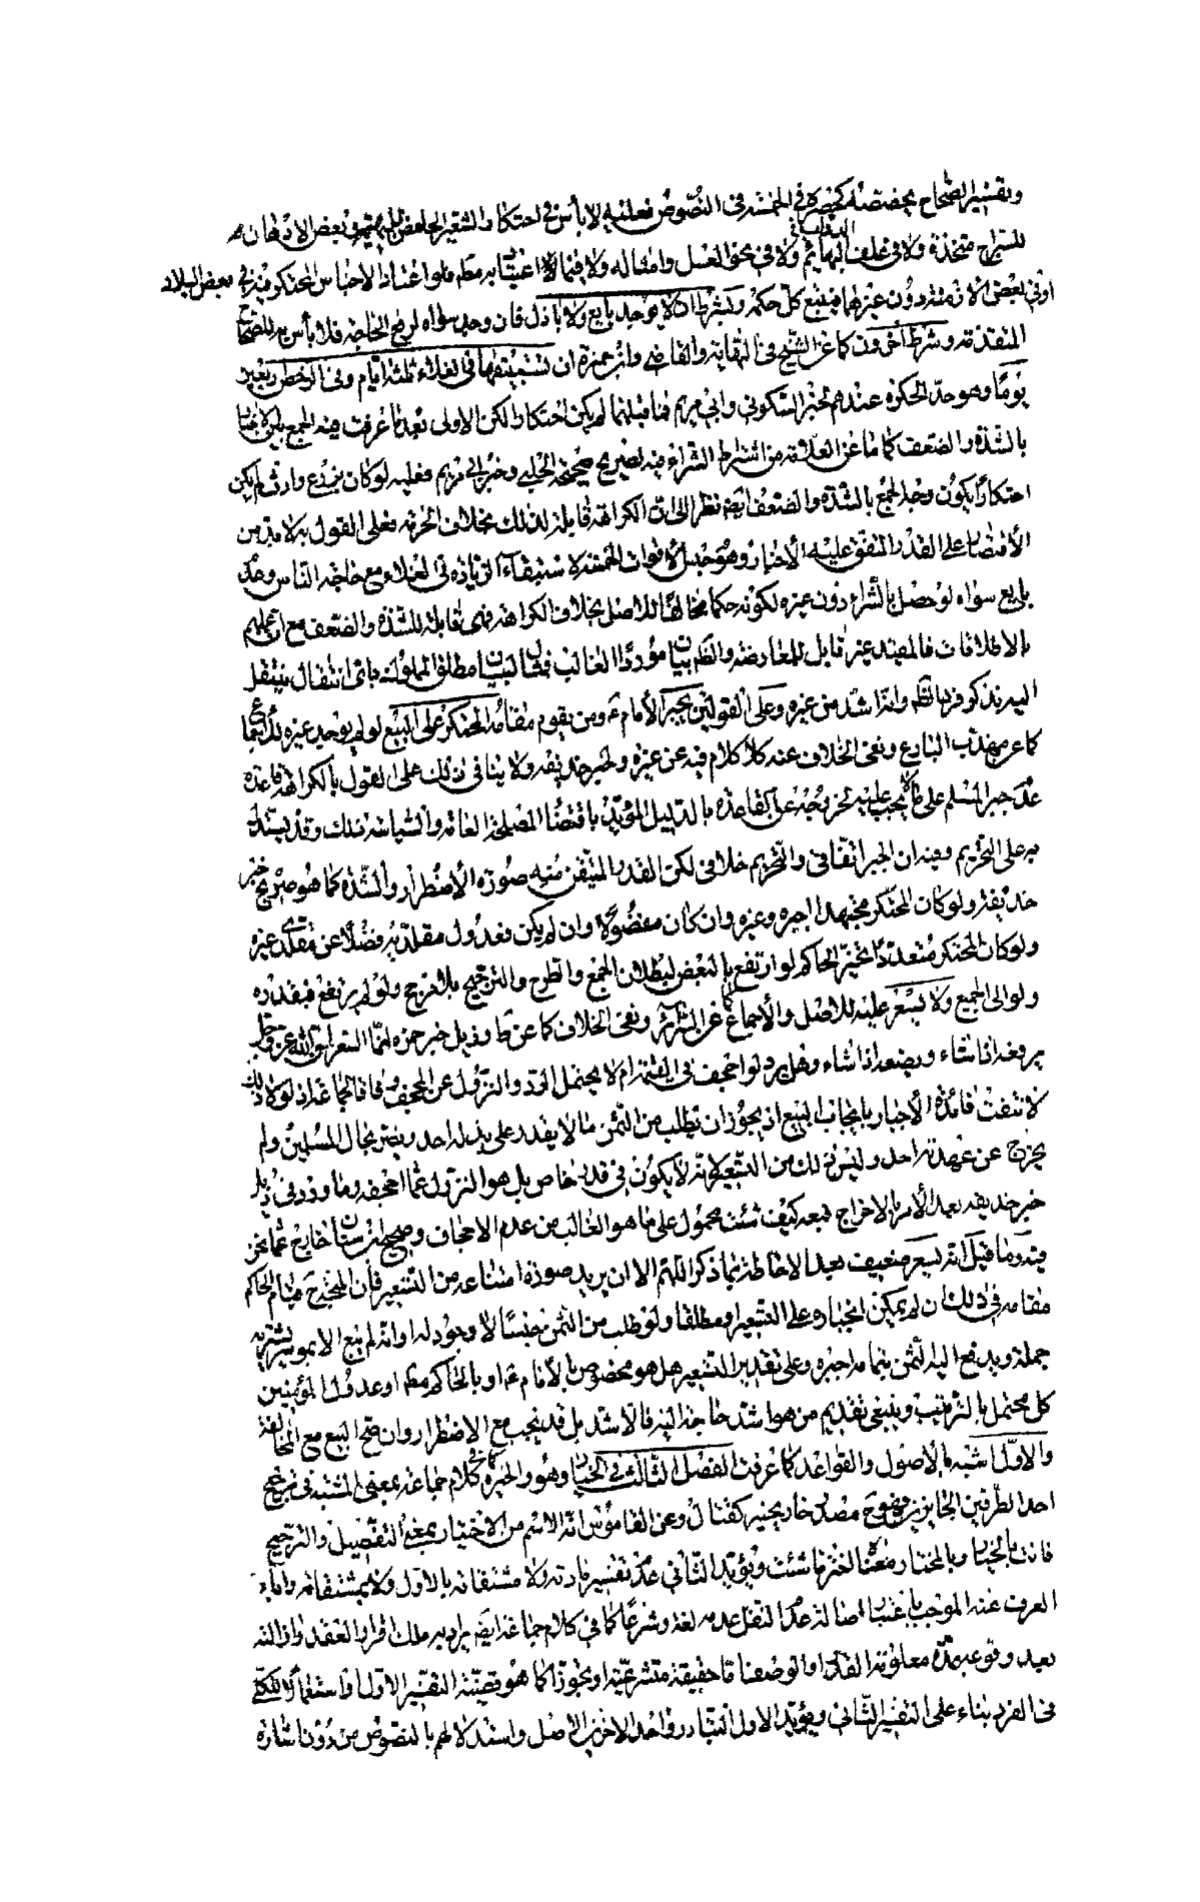 وتفسير الصحاح بحفصته كحصره في الخمسة في النصوص فعليه لا بأس في احتكار الشعير الجا بعض الأذهان
للسراج متخذة ولا في علف البهائم ولا في نحو العسل وامثاله ولا فيما لا اعتياد به مط فلو اعتاد الاحباس المحتكر فيه في بعض البلاد
او في بعض الازمنة دون غيرها فيتبع كل حكمه ويشترط ان لا يوجد بايع ولا باذل فان وجد سواه لرفع الحاجة فلا بأس به للصحاح
المتقدمة وشرط آخرون كما عن الشيخ في النهاية والقاضي وابن حمزة ان تستبقيها في الغلاء ثلثة ايام وفي الرخص اربعين
يوما وهو حد الحكرة عندهم لخبر السكوني وابي مريم فما قبلهما لم يكن احتكارا لكن الاولى بعد ما عرفت فيه الجمع
بالشدة والضعف كما ما عن العلامة من اشتراط الشراء فيه لصريح صحيحة الحلبي وخبر ابي مريم فعليه لو كان من زرع وارث لم يكن
احتكارا يكون وجه الجمع بالشدة والضعف ايضا نظرا الى ان الكراهة قابلة لذلك بخلاف الحرمة فعلى القول به لا بد من
الاقتصار على القدر المتفق عليه الأخبار وهو حبس الأقوات الخمسة لاستبقاء الزيادة في الغلاء مع حاجة الناس وعدم
بايع سواه لو حصل بالشراء دون غيره لكونه حكما مخالفا للاصل بخلاف الكراهة فهي قابلة للشدة والضعف مع
بالاطلاقات فالمقيد غير قابل للمعارضة والظ بيان موردا الغالب مطلق المملوكة باي انتقال ينتقل
اليه وانذا شد من غيره وعلى القولين يجبر الأمام ع ومن يقوم مقامه المحتكر على البيع لو لم يوجد غيره
كما عن مهذب البارع ونفى الخلاف عنه كلا كلام فيه عن غيره ولخبر حذيفة ولا ينافي ذلك على القول بالكراهة قاعدة
عدم جبر المسلم على ما لا يجب عليه لخروجه عن القاعدة بالدليل المؤيد باقتضاء المصلحة العامة والسياسة ذلك وقد يستدل
به على التحريم وفيه ان الجبر اتفاقي والتحريم خلافي لكن القدر المتيقن منه صورة الأضطرار والشدة كما هو صريح خبر
حذيفة ولو كان المحتكر مجتهدا اجبره وغيره وان كان مفضولا وان لم يكن فعدول مقلديه فضلا عن مقلدي غيره
ولو كان المحتكر متعددا تخير الحاكم لو ارتفع بالبعض لبطلان الجمع والطرح والترجيح بلا مرجح ولو لم يرتفع فبقدره
ولو الى الجميع ولا يسعر عليه للاصل والأجماع كما عن السرائر ونفى الخلاف كما عن ط وذيل خبر حمزة انما السعر الى الله عز وجل
يرفعه اذا شاء ويضعه اذا شاء وهل يرد لو اجحف في القيمة ام لا يحتمل الرد والنزول عن المجحف وفاقا لجماعة اذ لولا ذلك
لانتفت فائدة الأجبار بايجاب البيع اذ يجوز ان يطلب من الثمن ما لا يقدر على بذله احد ويضر بحال المسلمين ولم
يخرج عن عهدته احد وليس ذلك من التسعير لانه لا يكون في قدر خاص بل هو النزول عما اجحفه وما ورد في ذيل
خبر حذيفة بعد الأمر بالاخراج فبعه كيف شئت محمول على ما هو الغالب من عدم الاجحاف وصحيح ابن سنان خارج عما نحن
فيه وما قيل انه يسعر ضعيف بعد الاحاطة بما ذكر اللهم الا ان يريد صورة امتناعه من التسعير فان المخرج قيام الحاكم
مقامه في ذلك ان لم يمكن اجباره على التسعير او مطلقا ولو طلب من الثمن جنسا لا وجود له او انه لم يبع الا بمن يشتريه
جملة ويدفع اليه الثمن بتمامه اجبره وعلى تقدير التسعير هل هو مخصوص بالأمام ع او بالحاكم مط او عدول المؤمنين
كل محتمل بالترتيب وينبغي تقديم من هو اشد حاجة اليه فالاشد بل قد يجب مع الاضطرار وان صح البيع مع المخالفة
والاول اشبه بالأصول والقواعد كما عرفت الفصل الثالث في الخيار وهو والخيرة كما في كلام جماعة بمعنى المشيئة في ترجيح
احد الطرفين الجايز وقوعه مصدر خار يخير كقتال وعن القاموس انه الاسم من الاختيار بمعنى التفضيل والترجيح
فانت بالخيار وبالمختار معناه اختر ما شئت ويؤيد الثاني عدم تفسير مادته ولا مشتقاته بالاول ولا بمشتقاته واباء
العرف عنه الموجب باعتبار اصالة عدم النقل عدمه لغة وشرعا كما في كلام جماعة ايضا يراد به ملك اقرار العقد وازالته
بعد وقوعه مدة معلومة القدر او الوصف اما حقيقة متشرعية او تجوزا كما هو قضية التفسير الاول او استعمالا للكلي
في الفرد بناء على التفسير الثاني ويؤيد الاول التبادر واحد الاخرين الاصل واستدلالهم بالنصوص من دون اشارة